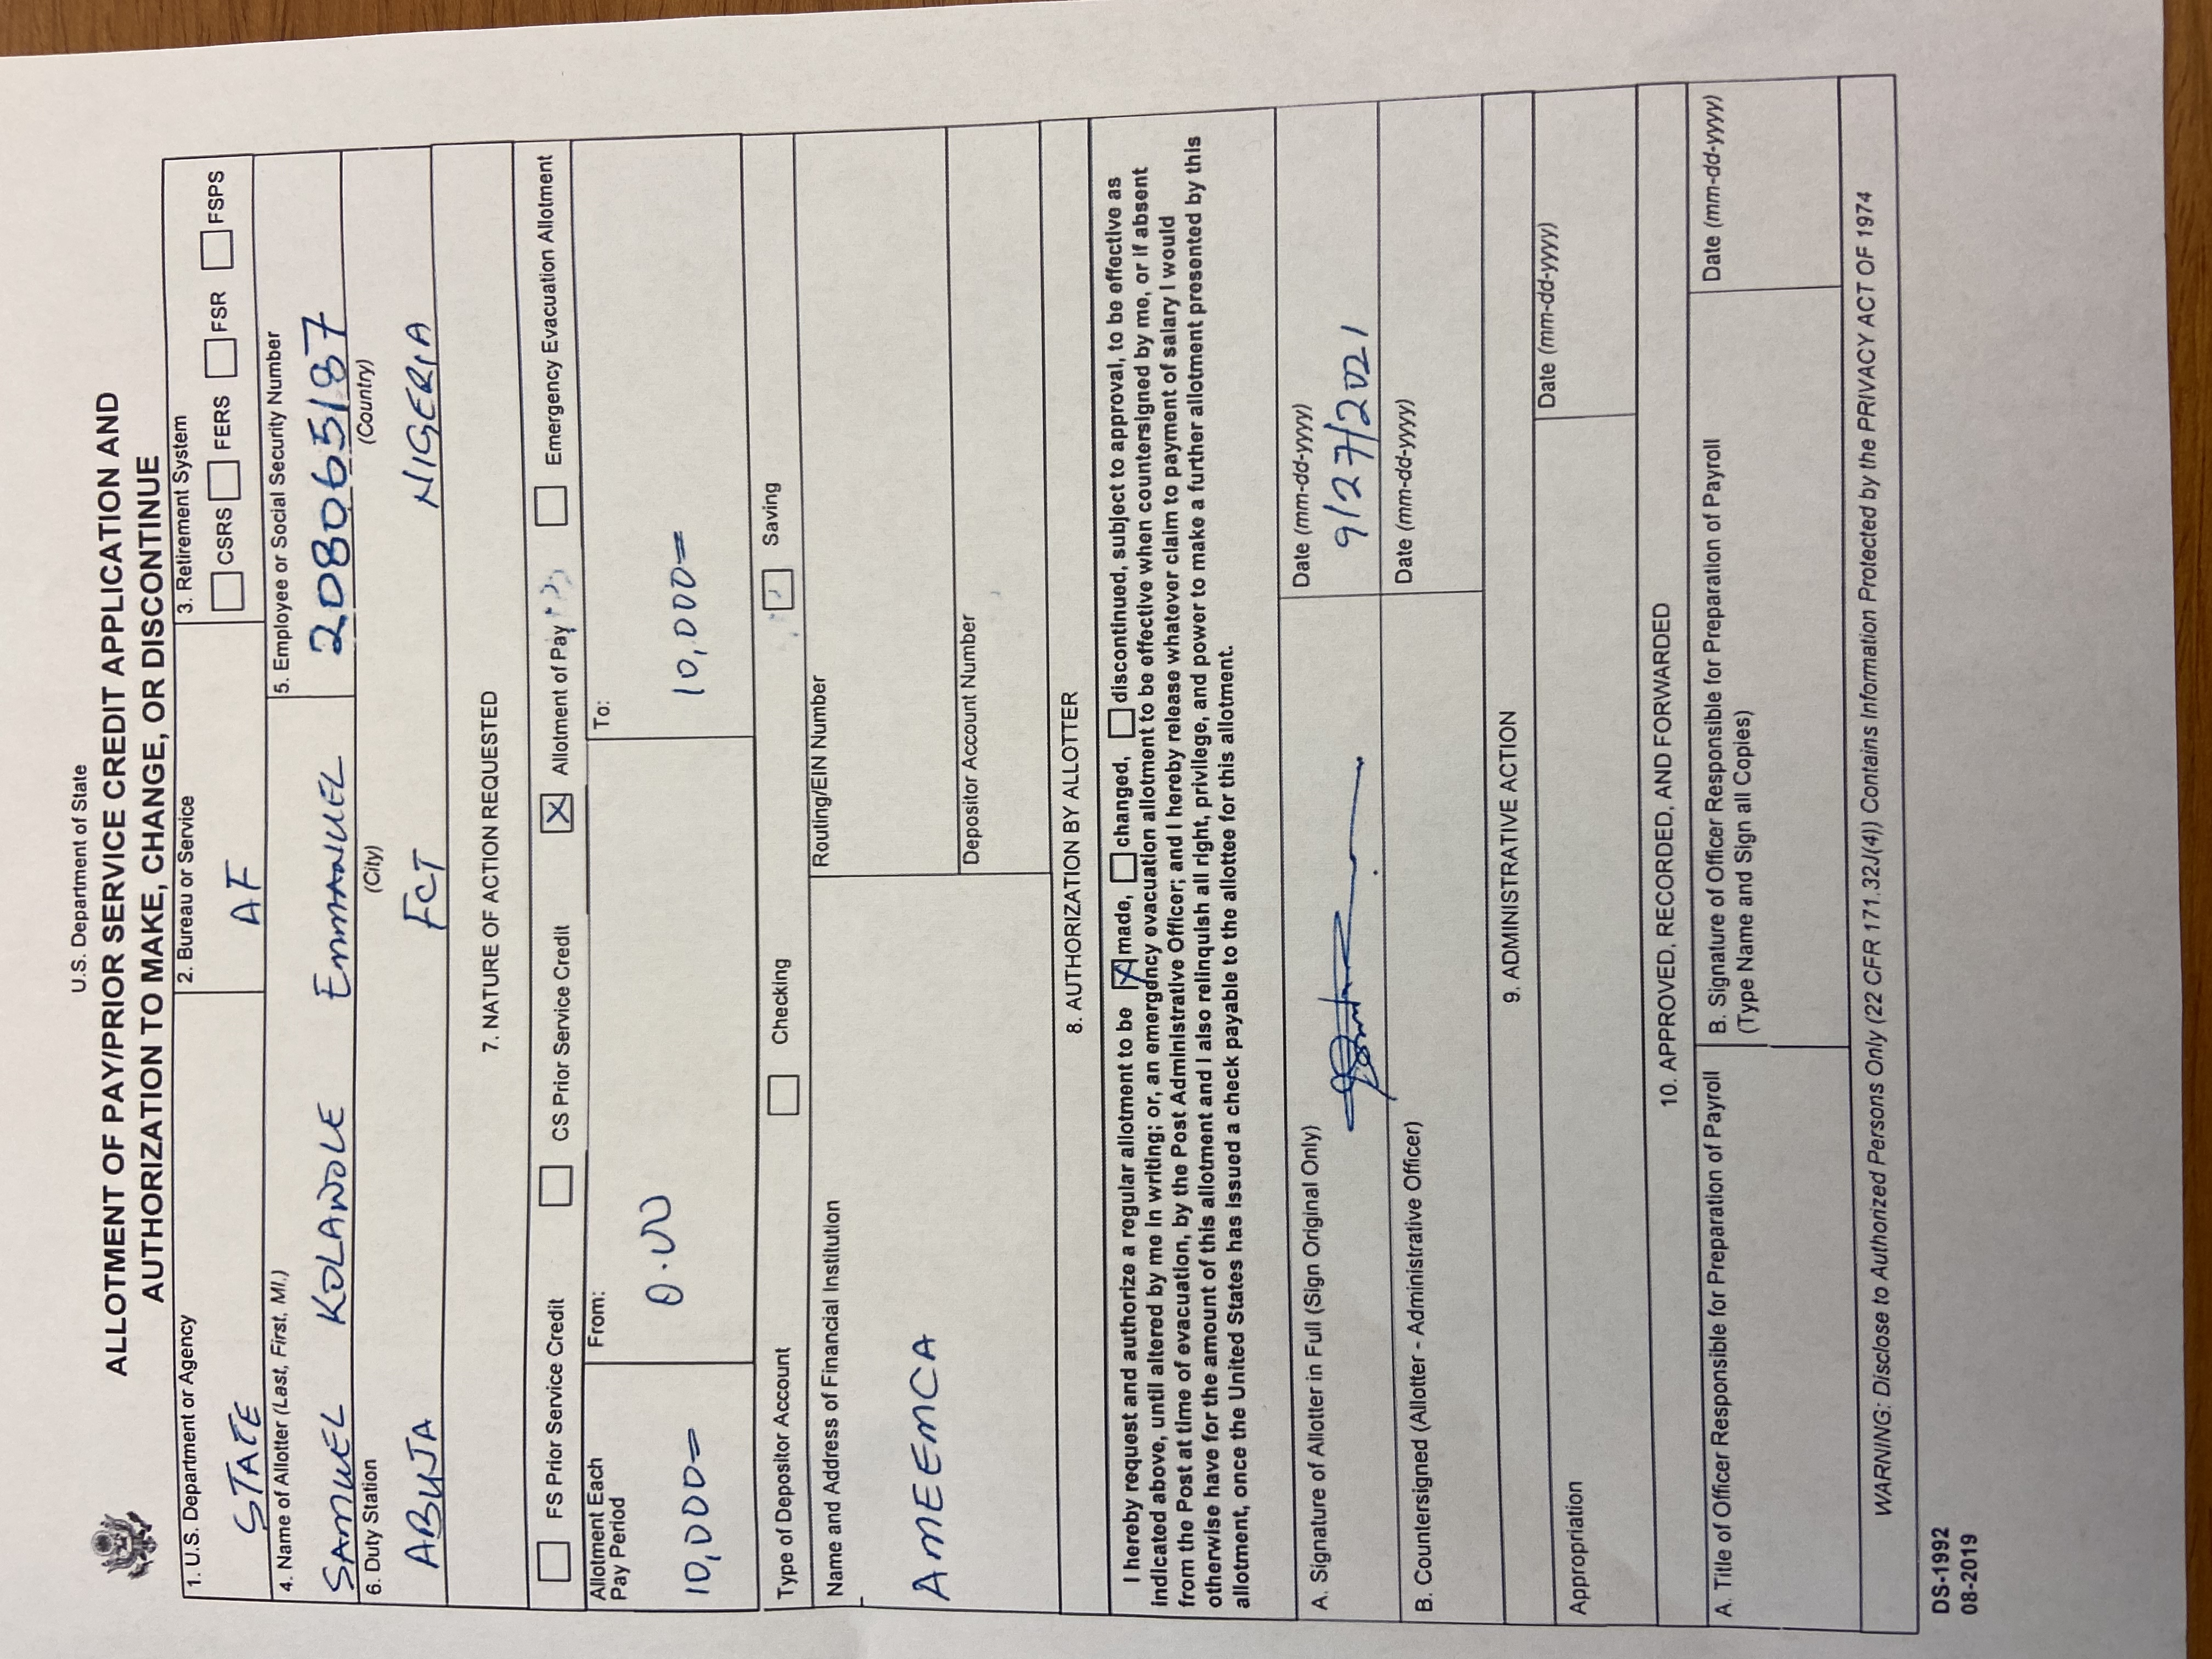 U.S. Department of State
ALLOTMENT OF PAY/PRIOR SERVICE CREDIT APPLICATION AND
AUTHORIZATION TO MAKE, CHANGE, OR DISCONTINUE
1. U.S. Department or Agency
STATE
2. Bureau or Service
AF
3. Retirement System
CSRS FERS FSR FSPS
4. Name of Allotter (Last, First, MI.)
SAMUEL KOLAWOLE EMMANUEL
5. Employee or Social Security Number
208065187
6. Duty Station (City) (Country)
ABUJA FCT NIGERIA
7. NATURE OF ACTION REQUESTED
FS Prior Service Credit CS Prior Service Credit X Allotment of Pay Emergency Evacuation Allotment
Allotment Each
Pay Period
10,000=
From:
0.00
To:
10,000=
Type of Depositor Account Checking Saving
Name and Address of Financial Institution
AMEEMCA
Routing/EIN Number
Depositor Account Number
8. AUTHORIZATION BY ALLOTTER
I hereby request and authorize a regular allotment to be X made, changed, discontinued, subject to approval, to be effective as
indicated above, until altered by me in writing; or, an emergency evacuation allotment to be effective when countersigned by me, or if absent
from the Post at time of evacuation, by the Post Administrative Officer; and I hereby release whatever claim to payment of salary I would
otherwise have for the amount of this allotment and I also relinquish all right, privilege, and power to make a further allotment presented by this
allotment, once the United States has issued a check payable to the allottee for this allotment.
A. Signature of Allotter in Full (Sign Original Only)
Date (mm-dd-yyyy)
9/27/2021
B. Countersigned (Allotter - Administrative Officer)
Date (mm-dd-yyyy)
9. ADMINISTRATIVE ACTION
Appropriation
Date (mm-dd-yyyy)
10. APPROVED, RECORDED, AND FORWARDED
A. Title of Officer Responsible for Preparation of Payroll
B. Signature of Officer Responsible for Preparation of Payroll
(Type Name and Sign all Copies)
Date (mm-dd-yyyy)
WARNING: Disclose to Authorized Persons Only (22 CFR 171.32J(4)) Contains Information Protected by the PRIVACY ACT OF 1974
DS-1992
08-2019